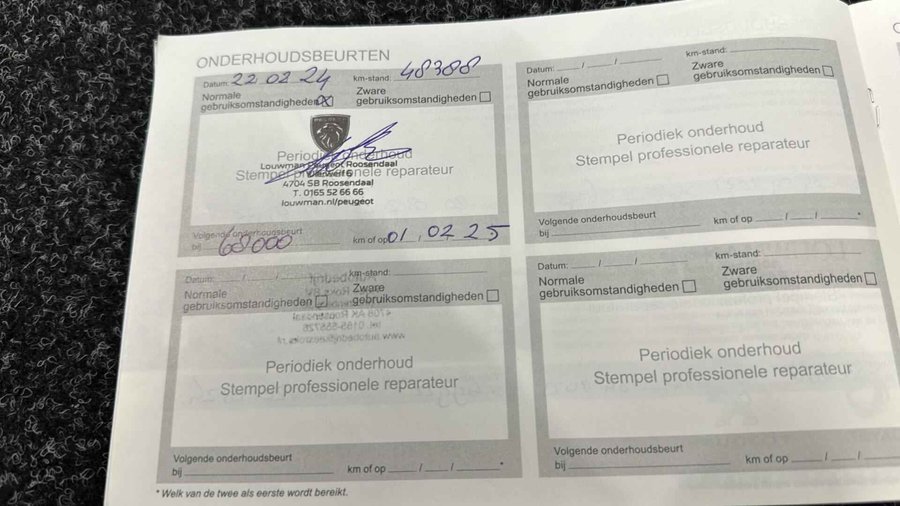 ONDERHOUDSBEURTEN
Datum: 22 02 24 km-stand: 48388
Normale gebruiksomstandigheden Zware gebruiksomstandigheden
Periodiek onderhoud
Stempel professionele reparateur
Louwman Peugeot Roosendaal
4704 SB Roosendaal
T. 0165 52 66 66
louwman.nl/peugeot
Volgende onderhoudsbeurt
bij 68000 km of op 01.02 25
Datum: / / km-stand:
Normale gebruiksomstandigheden Zware gebruiksomstandigheden
Periodiek onderhoud
Stempel professionele reparateur
Volgende onderhoudsbeurt
bij km of op / / *
Datum: / / km-stand:
Normale gebruiksomstandigheden Zware gebruiksomstandigheden
Periodiek onderhoud
Stempel professionele reparateur
Volgende onderhoudsbeurt
bij km of op / / *
Datum: / / km-stand:
Normale gebruiksomstandigheden Zware gebruiksomstandigheden
Periodiek onderhoud
Stempel professionele reparateur
Volgende onderhoudsbeurt
bij km of op / /
* Welk van de twee als eerste wordt bereikt.